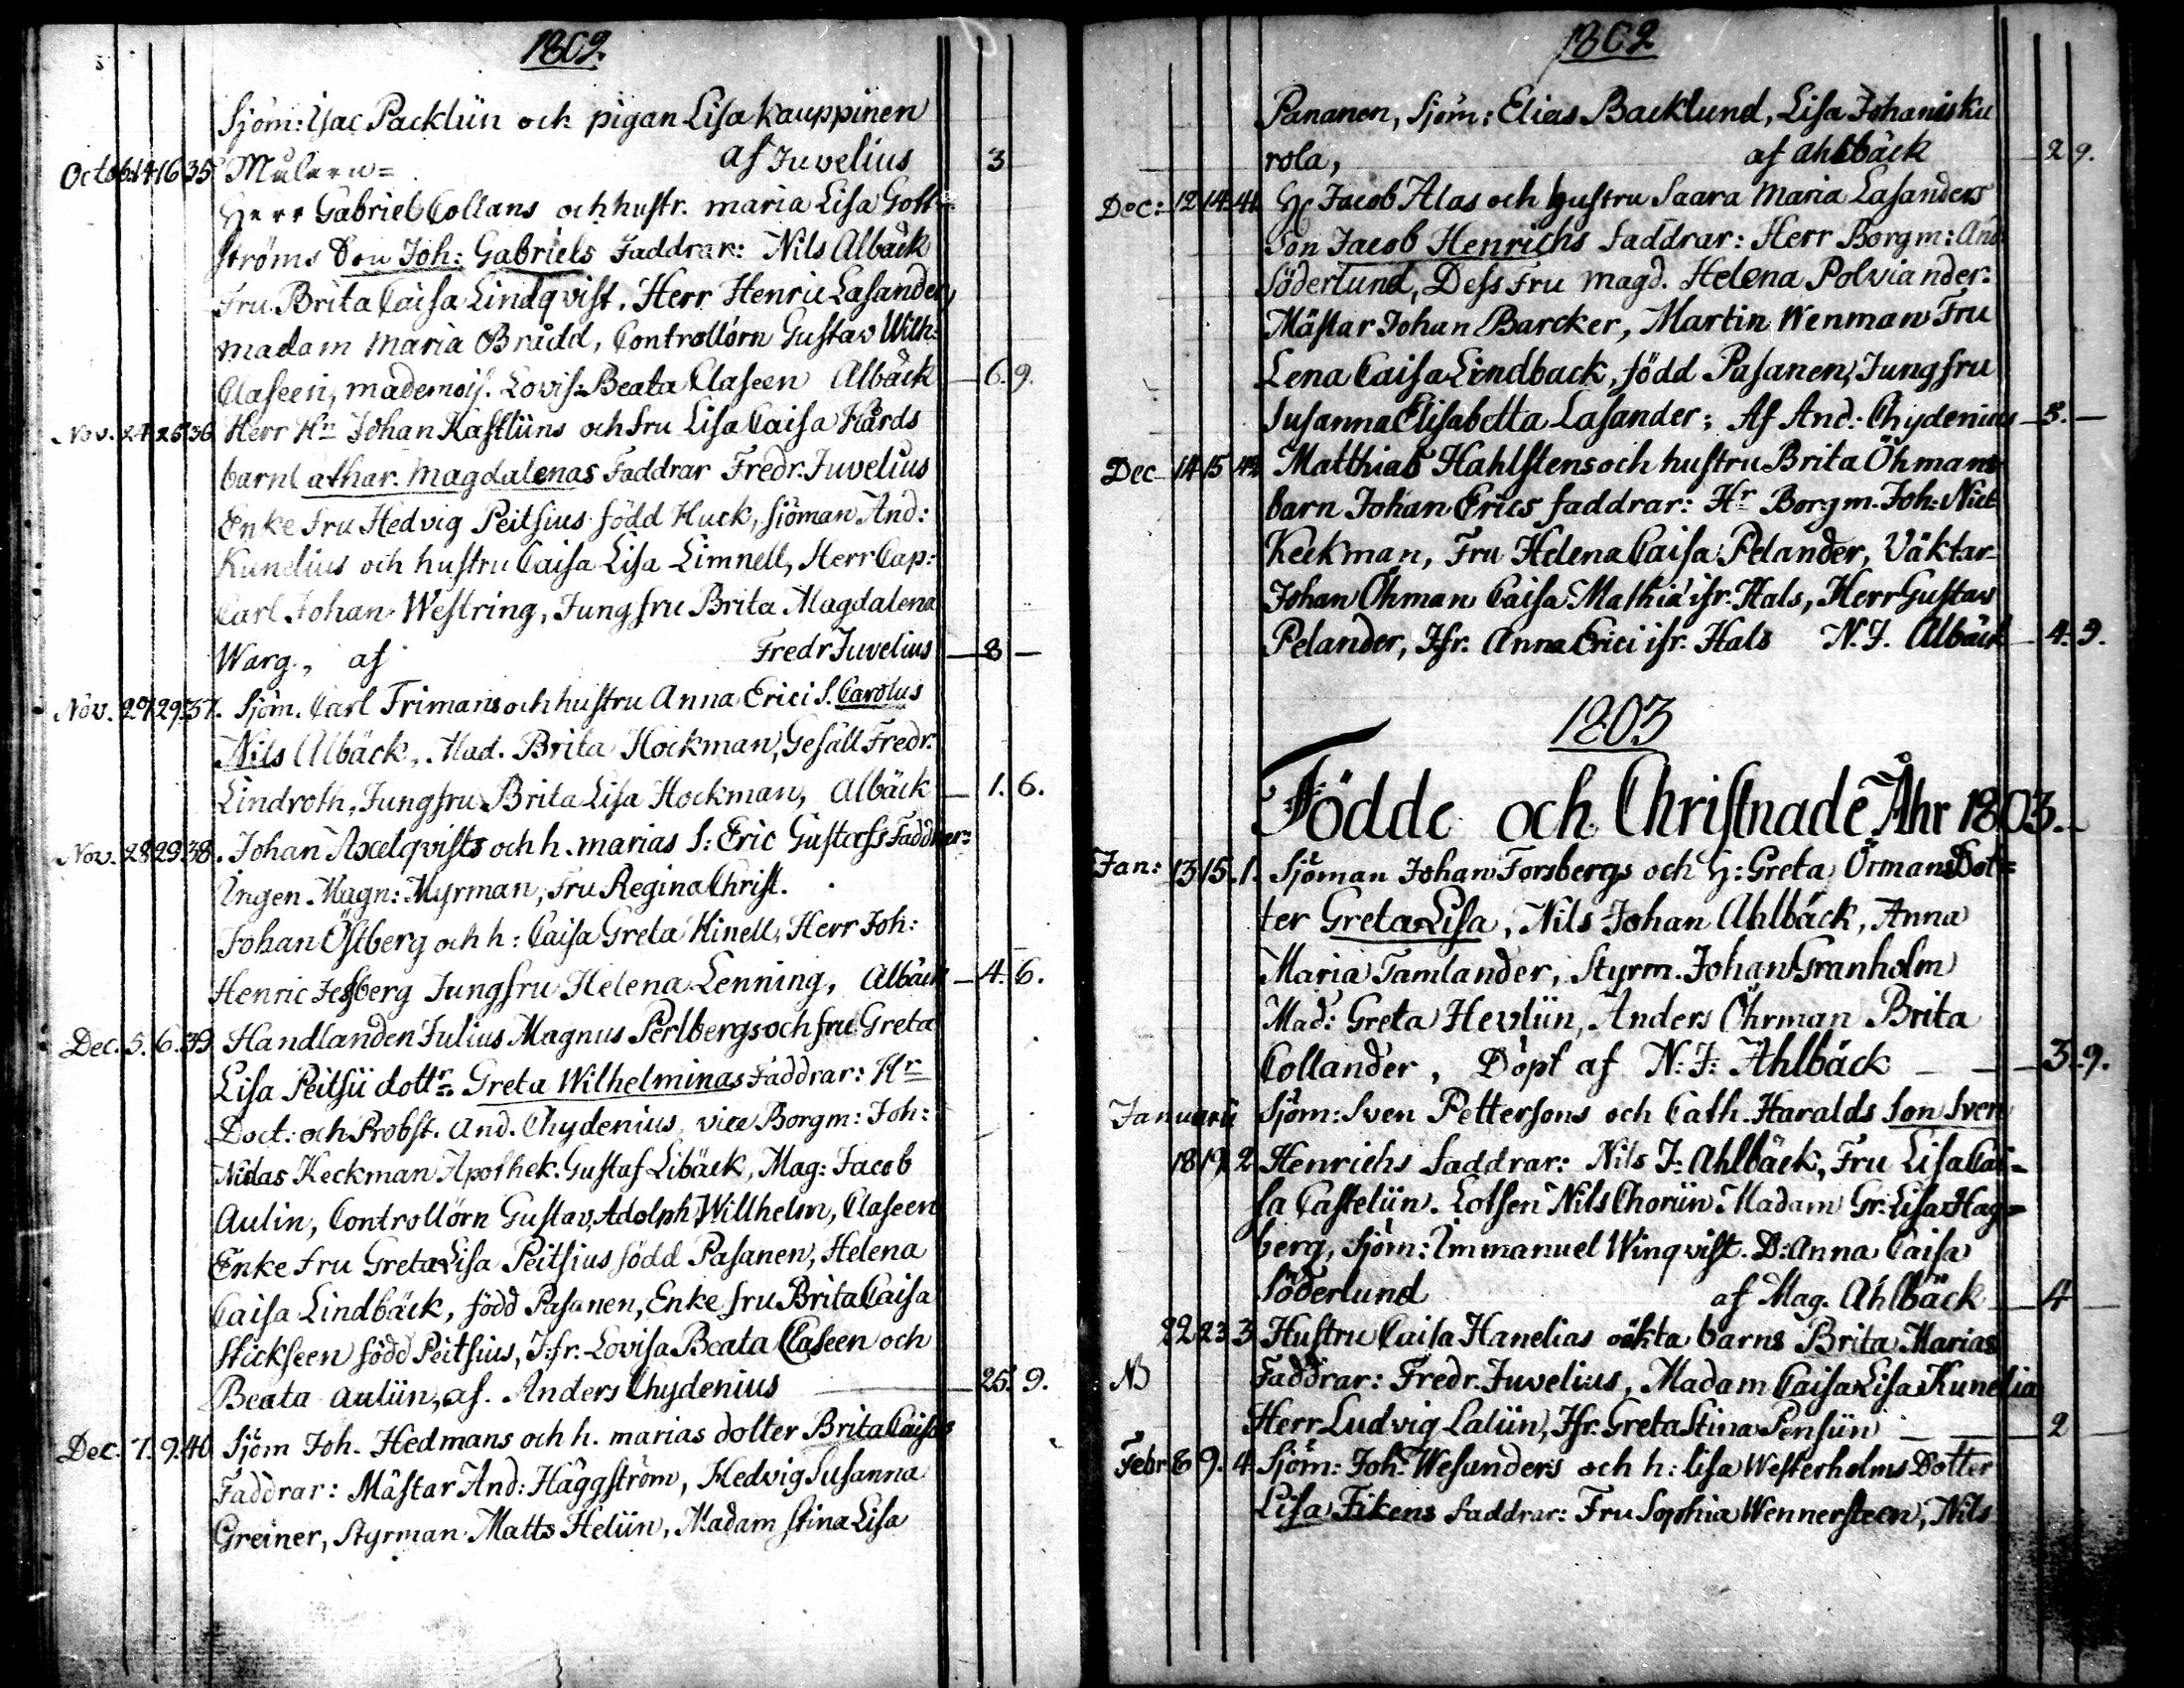 1802.
Sjöm: Isac Packlün och pigan Lisa Kauppinen
Mularu= af Juvelius 3
Octob: 14 16 35 Herr Gabriel Collans och hustr. maria Lisa Gott-
ströms Son Joh: Gabriels Faddrar: Nils Albäck
Fru. Brita Caisa Lindqvist. Herr Henric Lasander,
madam Maria Brådd, Controllörn Gustav Wilh:
Claseen, mademois. Lovis: Beata Claseen Albäck 6. 9.
Nov. 24 25 36 Herr Hn Johan Kastlüns och fru Lisa Caisa Hårds
barn Cathar. Magdalenas Faddrar Fredr. Juvelius
Enke Fru Hedvig Peitsius född Huck, sjöman And:
Kunelius och hustru Caisa Lisa Limnell, Herr Cap:
Carl Johan Westring, Jungfru Brita Magdalena
Warg., af Fredr Juvelius 8 —
Nov. 27 29 37. Sjöm. Carl Frimans och hustru Anna Erici S. Carolus
Nils Albäck, Mad. Brita Hockman, Gesäll Fredr.
Lindroth, Jungfru Brita Lisa Hockman, Albäck 1. 6.
Nov. 28 29 38. Johan Axelqvists och h. marias S: Eric Gustafs Faddrar:
Ingen. Magn: Myrman, Fru Regina Christ.
Johan Östberg och h: Caisa Greta Hinell, Herr Joh:
Henric Jesberg Jungfru Helena Lenning, Albäck 4. 6.
Dec. 5. 6. 39 Handlanden Julius Magnus Perlbergs och fru Greta
Lisa Peitsii dottr. Greta Wilhelminas Faddrar: Hr
Doct: och Probst. And. Chydenius, vice Borgm: Joh:
Niclas Keckman Apothek. Gustaf Libäck, Mag: Jacob
Aulin, Controllörn Gustav, Adolph, Willhelm, Claseen
Enke Fru Greta Lisa Peitsius född Pasanen, Helena
Caisa Lindbäck, född Pasanen, Enke fru Brita Caisa
Stickseen född Peitsius, J:fr. Lovisa Beata Claseen och
Beata Aulün, af. Anders Chydenius 25. 9.
Dec. 7. 9. 40 Sjöm Joh. Hedmans och h. marias dotter Brita Caisas
Faddrar: Mästar And: Häggström, Hedvig Susanna
Greiner, Styrman Matts Helün, Madam Stina Lisa
1802
Pananen, Sjöm: Elias Backlund, Lisa Johanis ku
rola, af Ahlbäck 2 9.
Dec: 12 14 41 H Jacob Alas och hustru Saara Maria Lasanders
Son Jacob Henrichs faddrar: Herr Borgm: And
Söderlund, Dess Fru Magd. Helena Polviander:
Mästar Johan Barcker, Martin Wenman Fru
Lena Caisa Lindback, född Pasanen, Jungfru
Susanna Elisabetta Lasander; Af And: Chydenius 5. —
Dec 14 15 42 Matthias Hahlstens och hustru Brita Öhmans
barn Johan Erics faddrar: Hr Borgm. Joh: Nicl
Keckman, Fru Helena Caisa Pelander, Väktar
Johan Öhman Caisa Mathiæ ifr. Hals, Herr Gustav
Pelander, Jfr. Anna Erici ifr. Hals N. J. Albäck 4. 9.
1803
Födde och Christnade Åhr 1803.
Jan: 13 15. 1. Sjöman Johan Forsbergs och H: Greta Örmans Dot=
ter Greta Lisa, Nils Johan Ahlbäck, Anna
Maria Tamlander, Styrm. Johan Granholm
Mad: Greta Hevlün, Anders Öhrman Brita
Collander, Döpt af N: J: Ahlbäck 3. 9.
Januarii Sjöm: Sven Pettersons och Cath. Haralds Son Sven
18 19 2 Henrichs faddrar: Nils J: Ahlbäck, Fru Lisa Cai-
sa Castelün. Lotsen Nils Chorün Madam Gr: Lisa Hag=
berg, Sjöm: Immanuel Winqvist. D: Anna Caisa
Söderlund af Mag. Ahlbäck 4 —
22 23 3 Hustru Caisa Hanelias oäkta barns Brita Marias
NB Faddrar: Fredr. Juvelius, Madam Caisa Lisa Kunelia
Herr Ludvig Lalün, Jfr. Greta Stina Pensün 2
Febr. 8 9. 4 Sjöm: Joh: Wesanders och h: Lisa Westerholms Dotter
Lisa Fikens faddrar: Fru Sophia Wennersteen, Nils